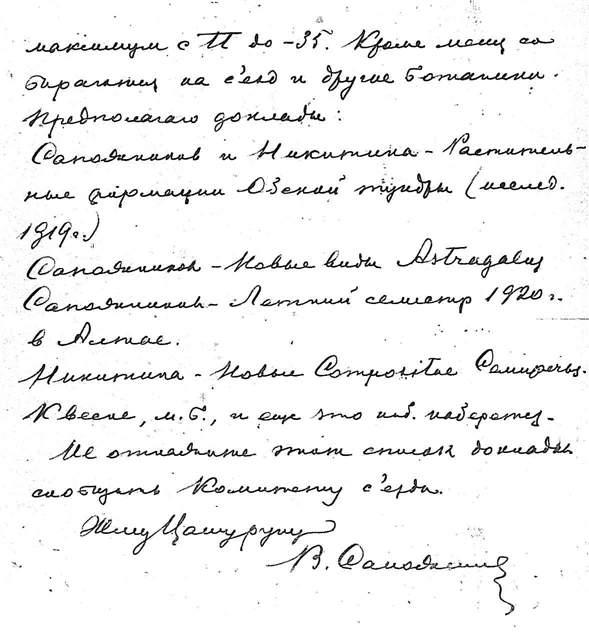 максимум с П до -35. Кроме меня со
бираются на с'езд и другие ботаники.
Предполагаю доклады:
Сапожников и Никитина - Раститель-
ные формации Обской тундры (исслед.
1919г.)
Сапожников - Новые виды Astragalus
Сапожников - Летний семестр 1920 г.
в Алтае.
Никитина - Новые Compositae Семиречья.
К весне, м.б., и еще что наберется.
Не откажите этот список докладов
сообщить Комитету с'езда.
Жму Вашу руку
В. Сапожников